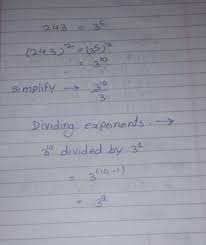 243 = 3⁵
(243)² = (3⁵)²
= 3¹⁰
Simplify → 3¹⁰/3
Dividing exponents →
3¹⁰ divided by 3¹
= 3⁽¹⁰⁻¹⁾
= 3⁹